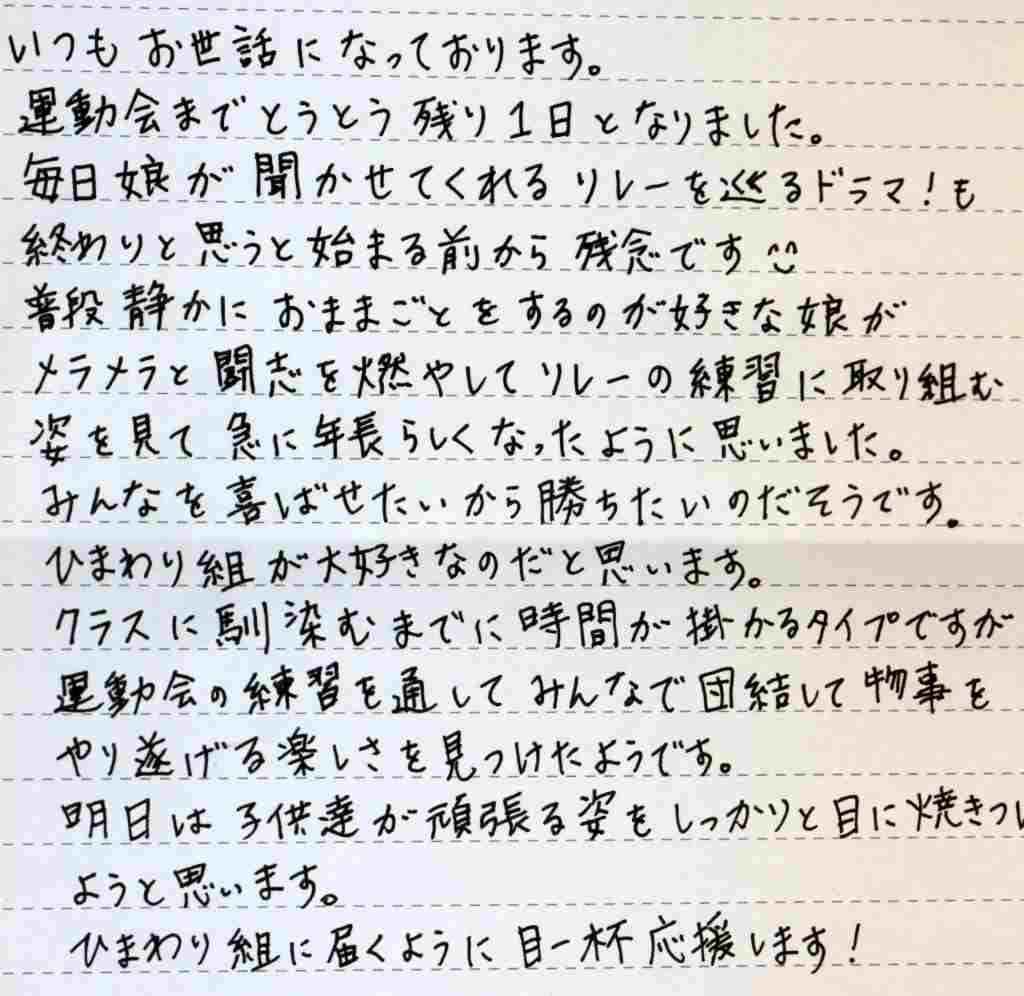 いつもお世話になっております。
運動会までとうとう残り1日となりました。
毎日娘が聞かせてくれるリレーを巡るドラマ!も
終わりと思うと始まる前から残念です
普段静かにおままごとをするのが好きな娘が
メラメラと闘志を燃やしてリレーの練習に取り組む
姿を見て急に年長らしくなったように思いました。
みんなを喜ばせたいから勝ちたいのだそうです。
ひまわり組が大好きなのだと思います。
クラスに馴染むまでに時間が掛かるタイプですが
運動会の練習を通してみんなで団結して物事を
やり遂げる楽しさを見つけたようです。
明日は子供達が頑張る姿をしっかりと目に焼きつけ
ようと思います。
ひまわり組に届くように目一杯応援します!